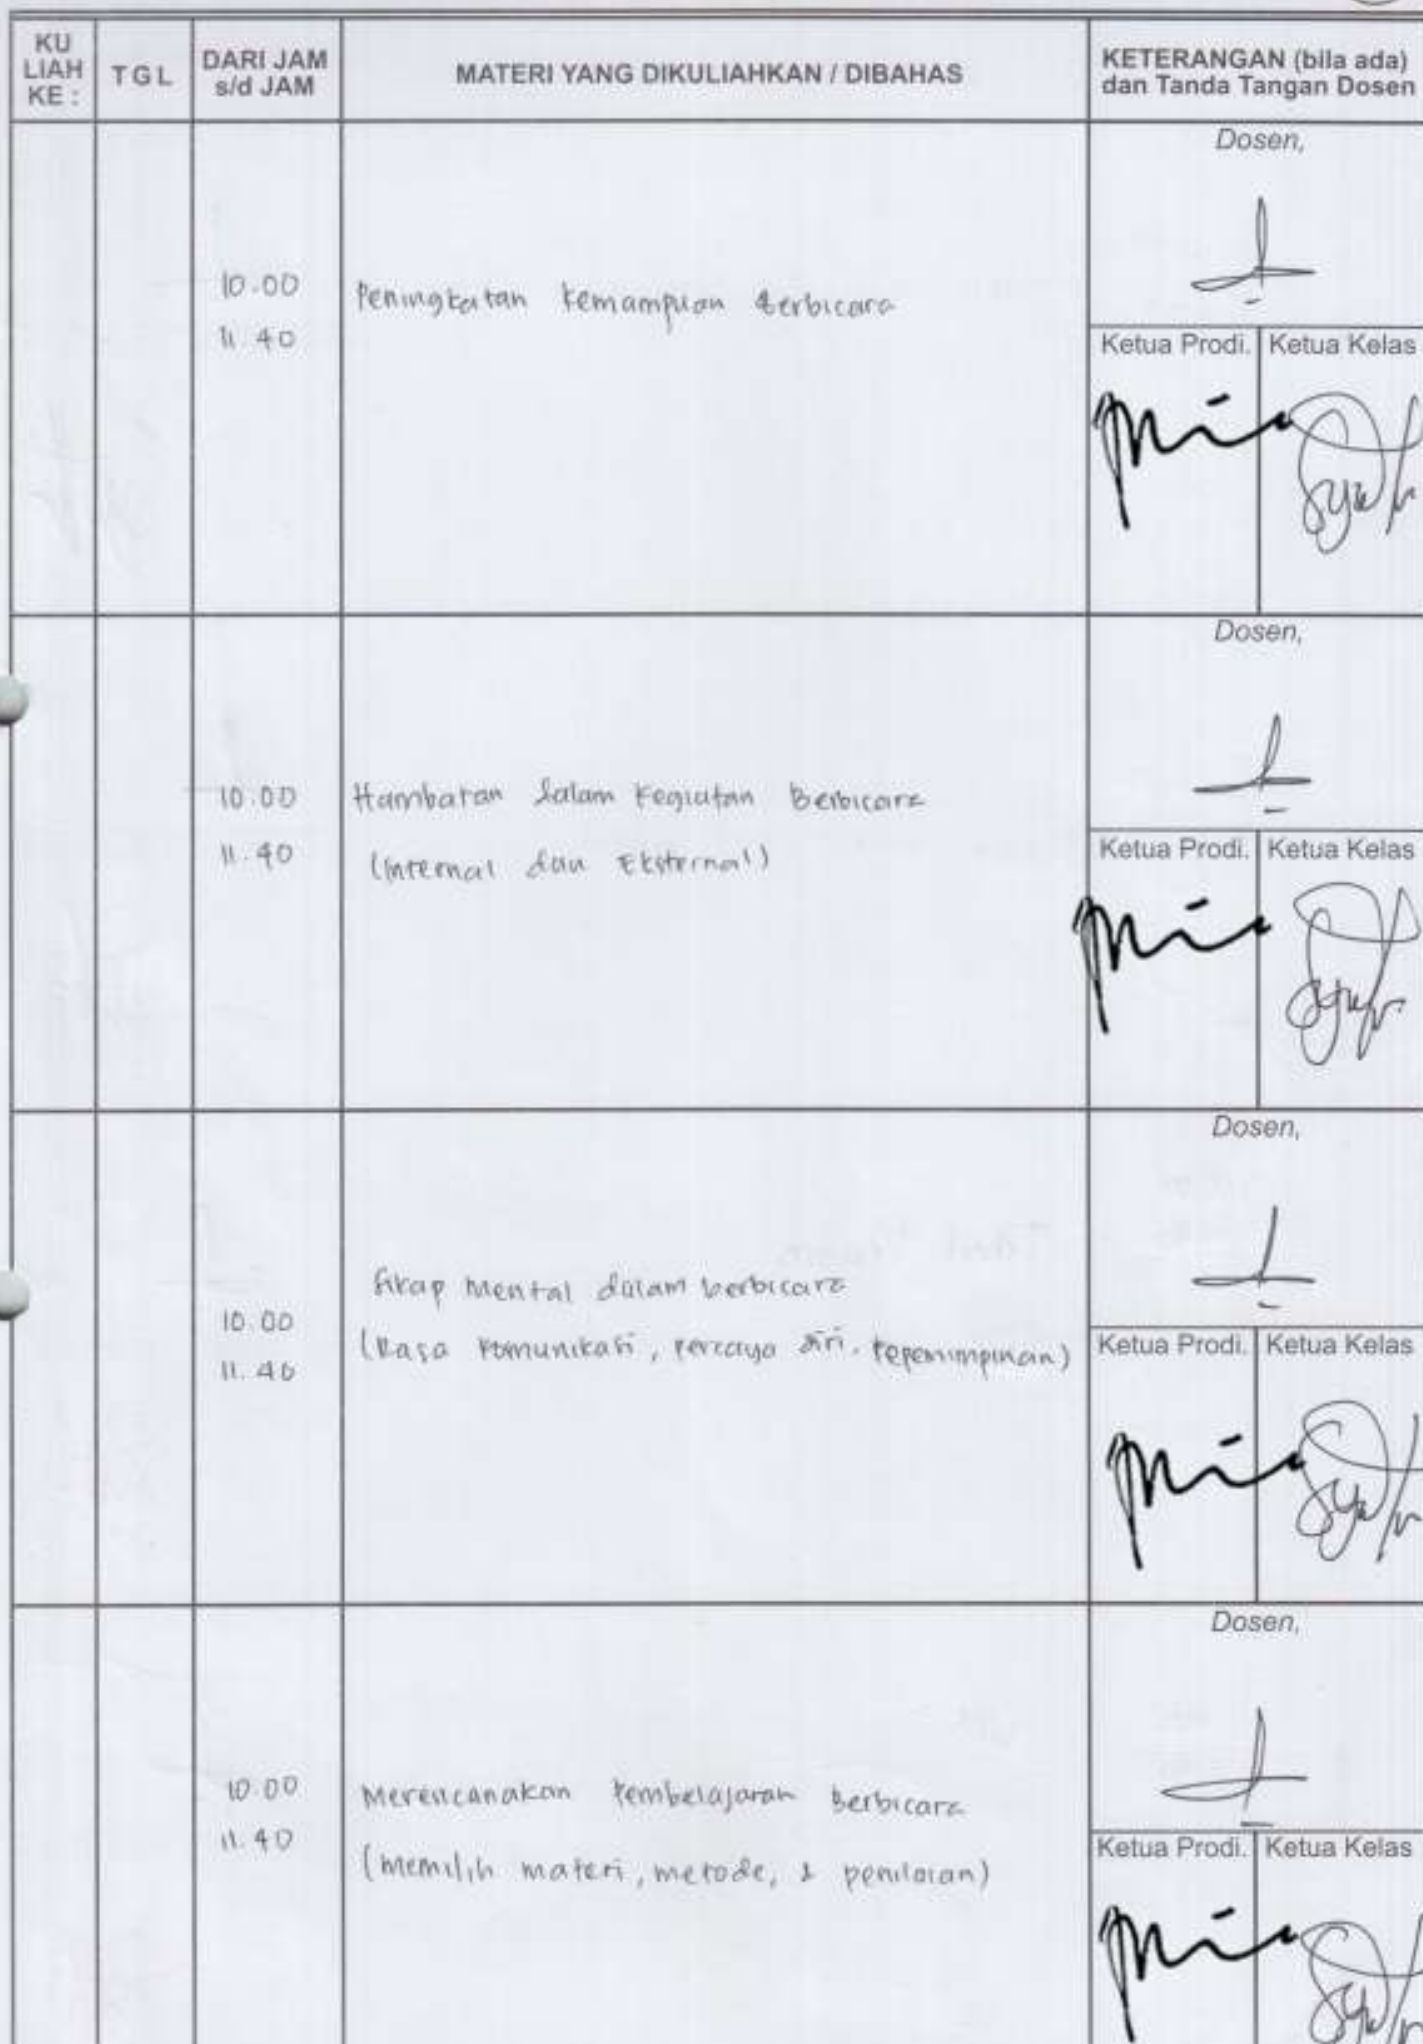 KU LIAH KE :
TGL
DARI JAM s/d JAM
MATERI YANG DIKULIAHKAN / DIBAHAS
KETERANGAN (bila ada) dan Tanda Tangan Dosen
Dosen,
10.00
11.40
Peningkatan Kemampuan Berbicara
Ketua Prodi.
Ketua Kelas
Dosen,
10.00
11.40
Hambatan dalam Kegiatan Berbicara
(Internal dan Eksternal)
Ketua Prodi.
Ketua Kelas
Dosen,
10.00
11.40
Sikap Mental dalam berbicara
(Rasa Komunikasi, percaya diri, kepemimpinan)
Ketua Prodi.
Ketua Kelas
Dosen,
10.00
11.40
Merencanakan Pembelajaran Berbicara
(memilih materi, metode, & penilaian)
Ketua Prodi.
Ketua Kelas